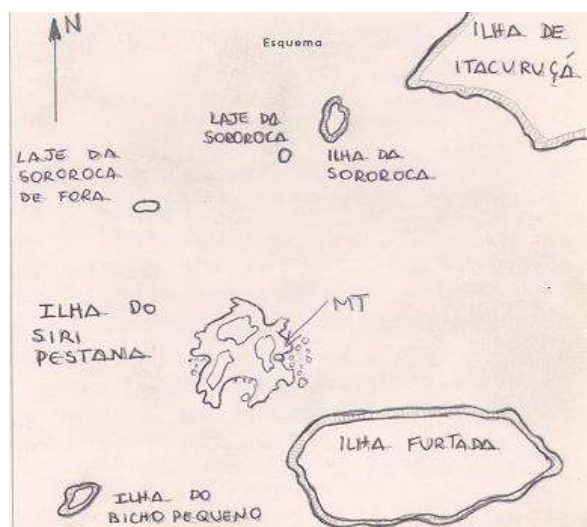 N
Esquema
ILHA DE
ITACURUÇÁ
LAJE DA
SOROROCA
ILHA DA
SOROROCA
LAJE DA
SOROROCA
DE FORA
ILHA DO
SIRI
PESTANA
MT
ILHA FURTADA
ILHA DO
BICHO PEQUENO